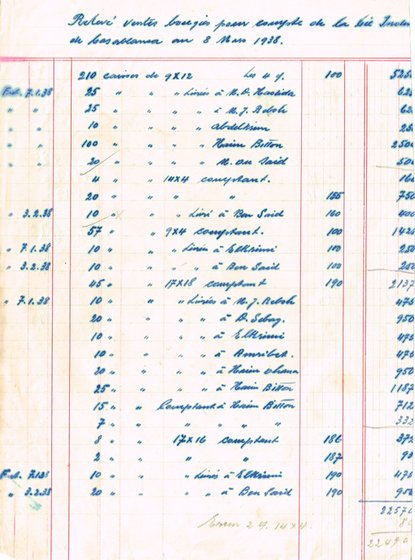 Relevé ventes bougies pour compte de la Sté
de Casablanca au 3 Mars 1938.
210 caisses de 9X12 Les 100 525
Fact. 7.1.38 25 " " " Livrés à M.D. 62
" " 25 " " " à M.J. 62
" " 10 " " " Abdelkrim 25
" " 100 " " " Haim Bitton 250
" " 20 " " " M. Ou Said 50
4 " " 14X4 comptant. 16
20 " " " " 155 750
" 3.2.38 10 " " " Livré à Ben Said 160 400
57 " " 9X4 comptant. 100 142
" 7.1.38 10 " " " Livrés à ElKrimi 100 250
" 3.2.38 10 " " " à Ben Said 100
45 " " 17X18 comptant 190 2137
" 7.1.38 10 " " " Livrés à M.J. 475
20 " " " à D. Sebag. 950
10 " " " à ElKrimi 475
10 " " " à 475
20 " " " à Haim 950
25 " " " à Haim Bitton 1187
15 " " Comptant à Haim Bitton 712
7 " " " " " 332
8 " " 17X16 comptant 186 372
2 " " " " 187
Fact. 7.1.38 10 " " " Livrés à ElKrimi 190 475
" 3.2.38 20 " " " à Ben Said 190 950
2257
14X4. 8
2249